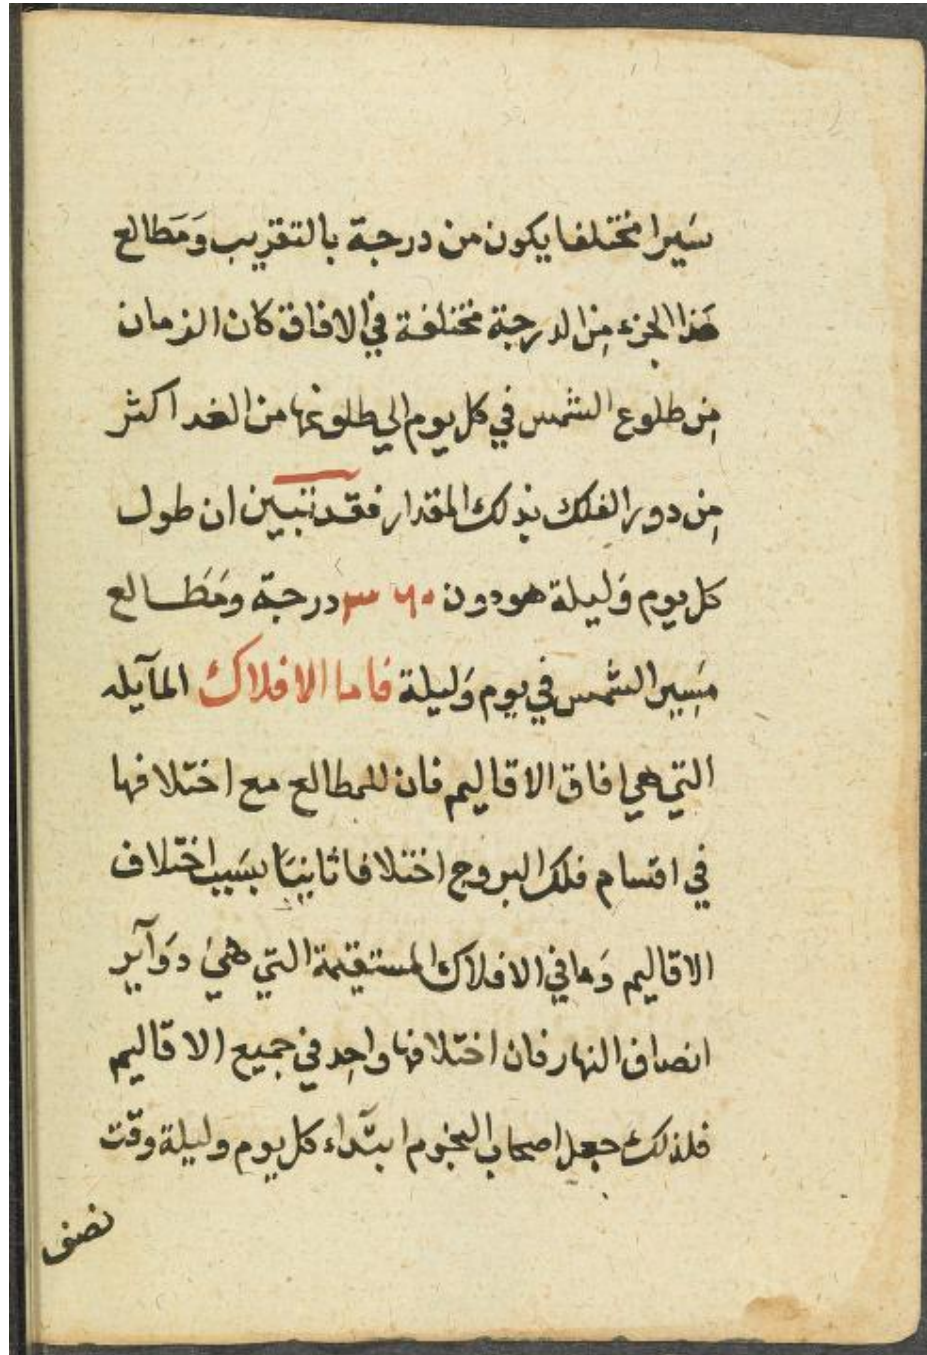 سَيرا مختلفا يكون من درجة بالتقريب وَمَطالع
هَذا الجزء مِن الدرجة مختلفة في الافاق كان الزمان
مِن طلوع الشمس في كل يوم الي طلوعها من الغد اكثر
مِن دور الفلك بذلك المقدار فقد تبين ان طول
كل يوم وَليلة هو دون ٣٦٠ درجة ومَطالع
مَسِير الشمس في يوم وَليلة فاما الافلاك المآيله
التي هي افاق الاقاليم فان للمطالع مع اختلافها
في اقسام فلك البروج اختلافا ثانيَا بسَبب اختلاف
الاقاليم وَما في الافلاك المستقيمة التي هيَ دوَآير
انصاف النهار فان اختلافها واحِد في جميع الاقاليم
فلذلك جعل اصحاب النجوم ابتدآء كل يوم وليلة وقت
نصف